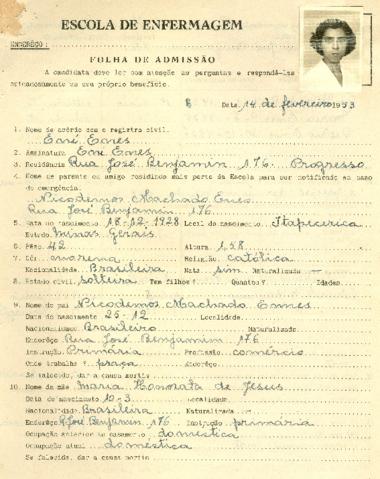 ESCOLA DE ENFERMAGEM
ENDERÊÇO:
FOLHA DE ADMISSÃO
A candidata deve ler com atenção as perguntas e respondê-las
atenciosamente em seu próprio benefício.
Data, 14 de fevereiro 1953
1. Nome de acôrdo com o registro civil.
Eni Eores
2. Assinatura Eni Eores
3. Residência Rua José Benjamin 176. Progresso
4. Nome de parente ou amigo residindo mais perto da Escola para ser notificado no caso
de emergência.
Nicodemos Machado
Rua José Benjamin, 176
5. Data do nascimento 18-02-1928 Local do nascimento Itapecerica
Estado Minas Gerais
6. Pêso 42 Altura 1,58
7. Côr morena Religião católica
Nacionalidade Brasileira Nata sim Naturalizada —
8. Estado civil solteira Tem filhos? Quantos? Idades
9. Nome do pai Nicodemos Machado
Data do nascimento 25-12 Localidade
Nacionalidade Brasileiro Naturalizado
Enderêço Rua José Benjamim 176
Instrução Primária Profissão comércio
Onde trabalha? praça Enderêço
Se falecido, dar a causa mortis
10. Nome da mãe Maria Honorata de Jesus
Data do nascimento 10-3 Localidade
Nacionalidade Brasileira Naturalizada
Enderêço R. José Benjamin 176 Instrução primária
Ocupação anterior ao casamento doméstica
Ocupação atual doméstica
Se falecida, dar a causa mortis